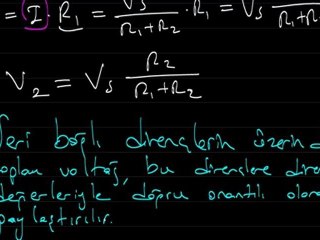 = I · R₁ = Vs / R₁+R₂ · R₁ = Vs R₁ / R₁+R₂
V₂ = Vs R₂ / R₁+R₂
Seri bağlı dirençlerin üzerin
toplam voltaj, bu dirençlere diren
değerleriyle doğru orantılı olara
paylaştırılır.